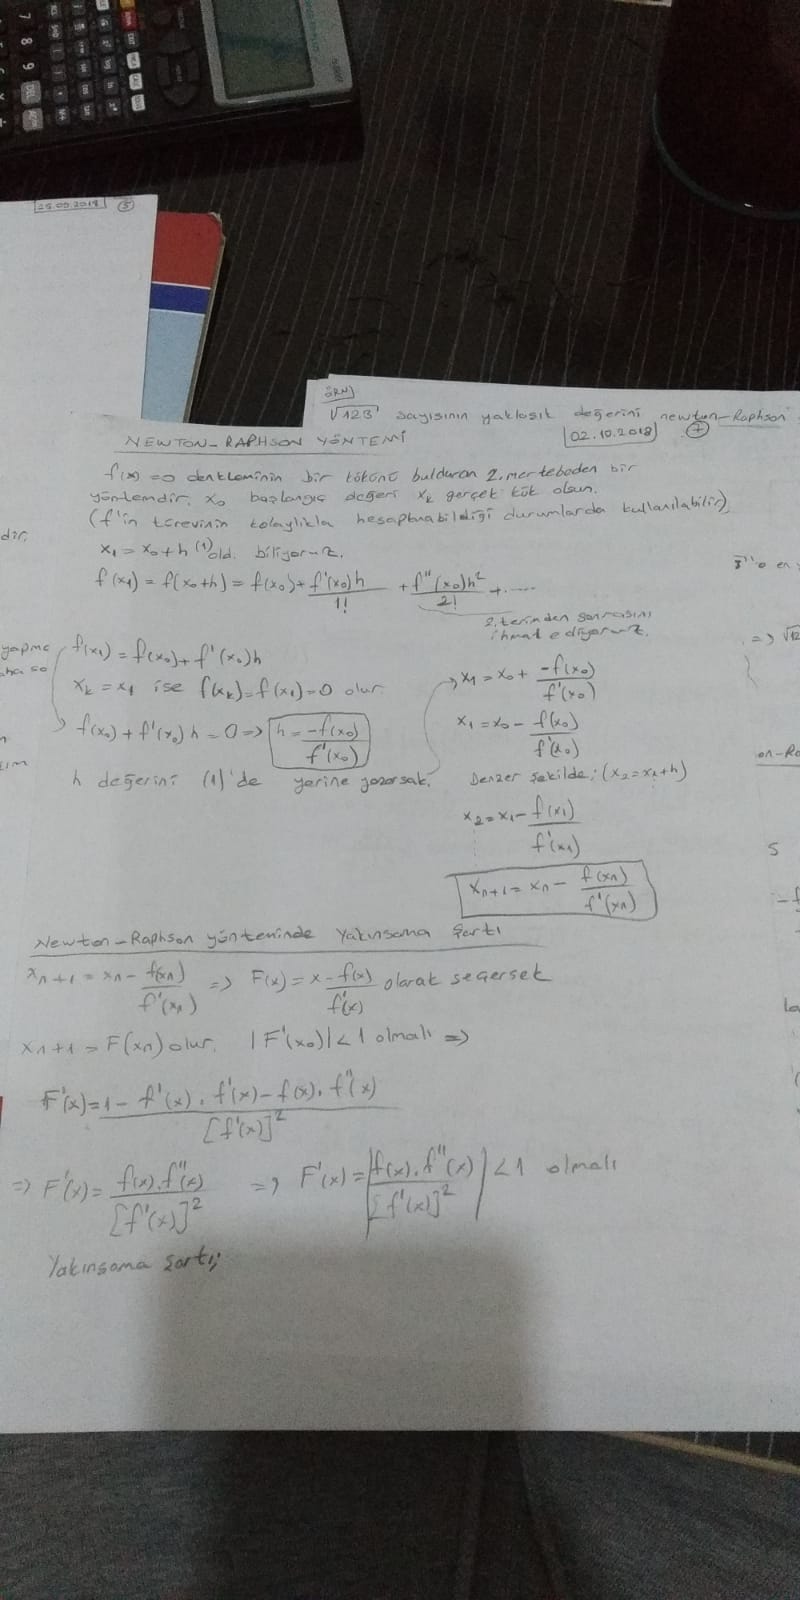 25.09.2018 5
ÖRN)
√123 sayısının yaklaşık değerini newton-Raphson
NEWTON-RAPHSON YÖNTEMİ
02.10.2018 7
f(x)=0 denkleminin bir kökünü bulduran 2. mertebeden bir
yöntemdir. x₀ başlangıç değeri xₖ gerçek kök olsun.
(f'in türevinin kolaylıkla hesaplanabildiği durumlarda kullanılabilir)
x₁ = x₀+h (1) old. biliyoruz.
f(x₁) = f(x₀+h) = f(x₀) + f'(x₀)h/1! + f''(x₀)h²/2! + ....
2. terimden sonrasını
ihmal ediyoruz.
f(x₁) = f(x₀) + f'(x₀)h
xₖ = x₁ ise f(xₖ)=f(x₁)=0 olur.
f(x₀) + f'(x₀)h = 0 => h = -f(x₀)/f'(x₀)
h değerini (1)'de yerine yazarsak,
x₁ = x₀ + -f(x₀)/f'(x₀)
x₁ = x₀ - f(x₀)/f'(x₀)
Benzer şekilde; (x₂=x₁+h)
x₂ = x₁ - f(x₁)/f'(x₁)
xₙ₊₁ = xₙ - f(xₙ)/f'(xₙ)
Newton-Raphson yönteminde Yakınsama Şartı
xₙ₊₁ = xₙ - f(xₙ)/f'(xₙ) => F(x) = x - f(x)/f'(x) olarak seçersek
xₙ₊₁ = F(xₙ) olur. |F'(x₀)|<1 olmalı =>
F'(x) = 1 - f'(x).f'(x) - f(x).f''(x)/[f'(x)]²
=> F'(x) = f(x).f''(x)/[f'(x)]² => F'(x) = |f(x).f''(x)/[f'(x)]²| < 1 olmalı
Yakınsama Şartı;
dir.
yapma
=> √12
on-Ra
5